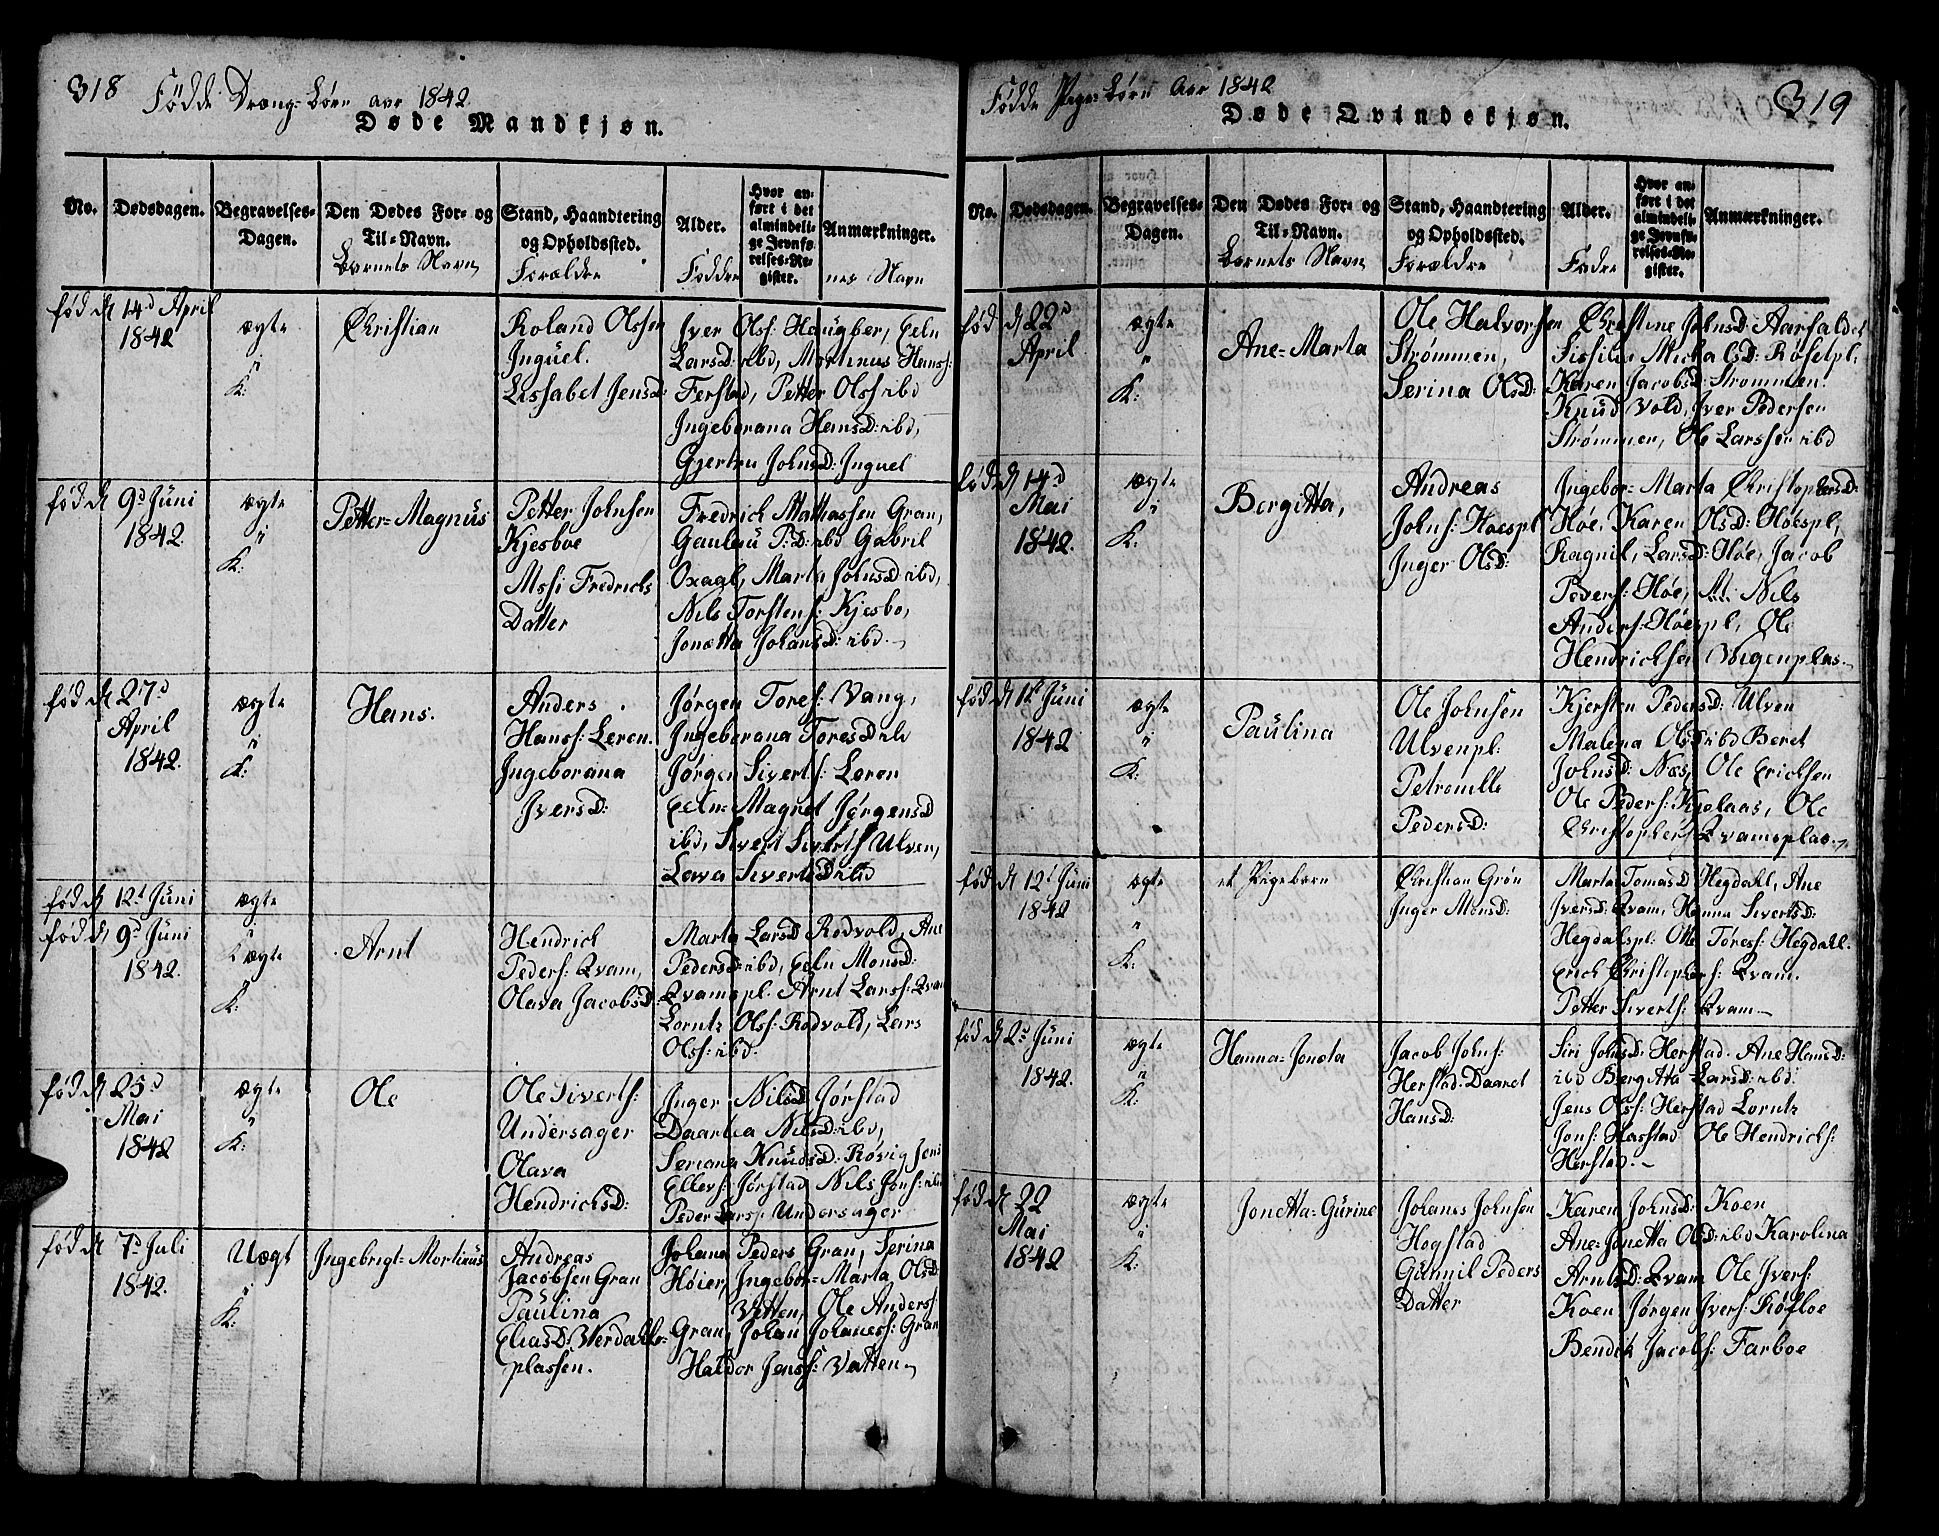 318 Fødde Dreng-Børn aar 1842
Døde Mandkjøn.
No. Dødsdagen. Begravelses-Dagen. Den Dødes For- og Til-Navn. Stand, Haandtering og Opholdssted. Alder. Hvor anført i det almindelige Jevnførelses-Register. Anmærkninger.
Barnets Navn Forældre Faddernes Navn
fød d 14d April
1842
ægte
"
K:
Christian
Roland Olssen
Inguel.
Lissabet Jensd:
Iver Olss: Haugber, Eeln
Larsd: ibd, Mortinus Hanss:
Ferstad, Petter Olss ibd
Ingeborana Hansd: ibd,
Gjertru Johnsd: Inguel
fød d 9d Juni
1842.
ægte
"
K:
Petter-Magnus
Petter Johnsen
Kjesboe
Massi Fredrichs
Datter
Fredrich Mathiassen Gran,
P:D: ibd Gabril
Oxaal, Marta Johnsd: ibd,
Nils Torstens: Kjesbo,
Jonetta Johansd: ibd.-
fød d 27d
April
1842.
ægte
"
K:
Hans.
Anders
Hanss: Leren.
Ingeborana
Iversd:
Jørgen Toresf: Vang,
Ingeborana Toresd: ibd
Jørgen Siverts: Leren
Eeln-Magret Jørgensd
ibd, Sivert Siverts Ulven,
Lava Sivertsd: ibd
fød d 12t Juni
ægte
fød d 9d Juni
1842.
"
ægte
K:
Arnt
Hendrich
Peders: Qvam,
Olava Jacobsd:
Marta Larsd Rodvold, Ane
Pedersd: ibd, Eeln Monsd:
Qvamspl. Arnt Larss: Qvam
Lorntz Olss: Rodvold, Lars
Olss: ibd.
fød d 25d
Mai
1842
ægte
"
K:
Ole
Ole Siverts:
Undersager
Olava
Hendrichsd:
Inger Nilsd Jørstad
Daartea Nilsd: ibd,
Seriana Knudsd: Røvig Jens
Ellevs: Jørstad Nils Jons: ibd
Peder Larss: Undersager
fød d 7d Juli
1842.
Uægt
"
K:
Ingebrigt-Mortinus
Andreas
Jacobsen Gran
Paulina
Eliasd: Werdahls-
plassen.
Johana Peders Gran, Serina
Høier, Ingebor-Marta Olsd:
Vatten, Ole Anderss:
Gran, Johan Johaness: Gran
Haldor Jenss: Vatten
Fødde Pige-Børn Aar 1842
319
Døde Qvindekjøn.
No. Dødsdagen. Begravelses-Dagen. Den Dødes For- og Til-Navn. Stand, Haandtering og Opholdssted. Alder. Hvor anført i det almindelige Jevnførelses-Register. Anmærkninger.
Barnets Navn Forældre Fadre
fød d 22d
April
ægte
"
K:
Ane-Marta
Ole Halvorsen
Strømmen,
Serina Olsd:
Christine Johnsd: Aarfaldet
Sissilia Michalsd: Røsetpl,
Karen Jacobsd: Strømmen:
Knud Vold, Iver Pedersen
Strømmen, Ole Larssen ibd
fød d 14d
Mai
1842.
ægte
"
K:
Bergitta,
Andreas
Johns: Høespl
Inger Olsd:
Ingebor-Marta Christophersd:
Høe, Karen Olsd: Høespl,
Ragnil, Larsd: Høe, Jacob
Peders: Høe, Nils
Anders: Høespl, Ole
Hendrichsen Vigenplas.-
fød d 1t Juni
1842
ægte
"
K:
Paulina
Ole Johnsen
Ulvenpl:
Petronille
Pedersd:
Kjersten Pedersd: Ulven
Malena Olsd: ibd Beret
Johnsd: Næs, Ole Ericksen
Ole Peders: Kjelaas, Ole
Christophers Qvamsplas.-
fød d 12t Juni
1842
ægte
"
K:
et Pigebarn
Christian Grøn
Inger Monsd:
Marta Tomasd Hegdahl, Ane
Iversd: Qvam, Hanna Sivertsd:
Hegdalspl: Ole Toress: Hegdahl.
Erich Christophers: Qvam.
Petter Siverts: Qvam.-
fød d 2d Juni
1842.
ægte
"
K:
Hanna-Joneta
Jacob Johns:
Herstad. Daaret
Hansd:
Siri Johnsd: Herstad. Ane Hansd:
ibd Bergitta Larsd: ibd:
Jens Olss: Herstad Lorntz
Jons: Hasstad Ole Hendrichs:
Herstad.-
fød d 22
Mai
1842
ægte
"
K:
Jonetta-Gurine
Johanes Johnsen
Hogstad
Gunnil Peders
Datter
Karen Johnsd: Koen
Ane-Jonetta Olsd: ibd Karolina
Arntsd: Qvam Ole Ivers:
Koen Jørgen Ivers: Røfloe
Bendik Jacobs: Farboe